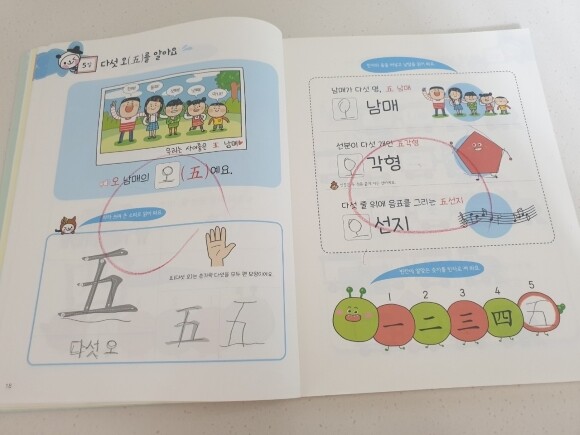 5일
다섯 오(五)를 알아요
우리는 사이좋은 五 남매♥
오 남매의 오 (五)예요.
五
다섯 오
五 五
18
남매가 다섯 명, 五 남매
오 남매
선분이 다섯 개인 五각형
오 각형
다섯 줄 위에 음표를 그리는 五선지
오 선지
1 2 3 4 5
一 二 三 四 五